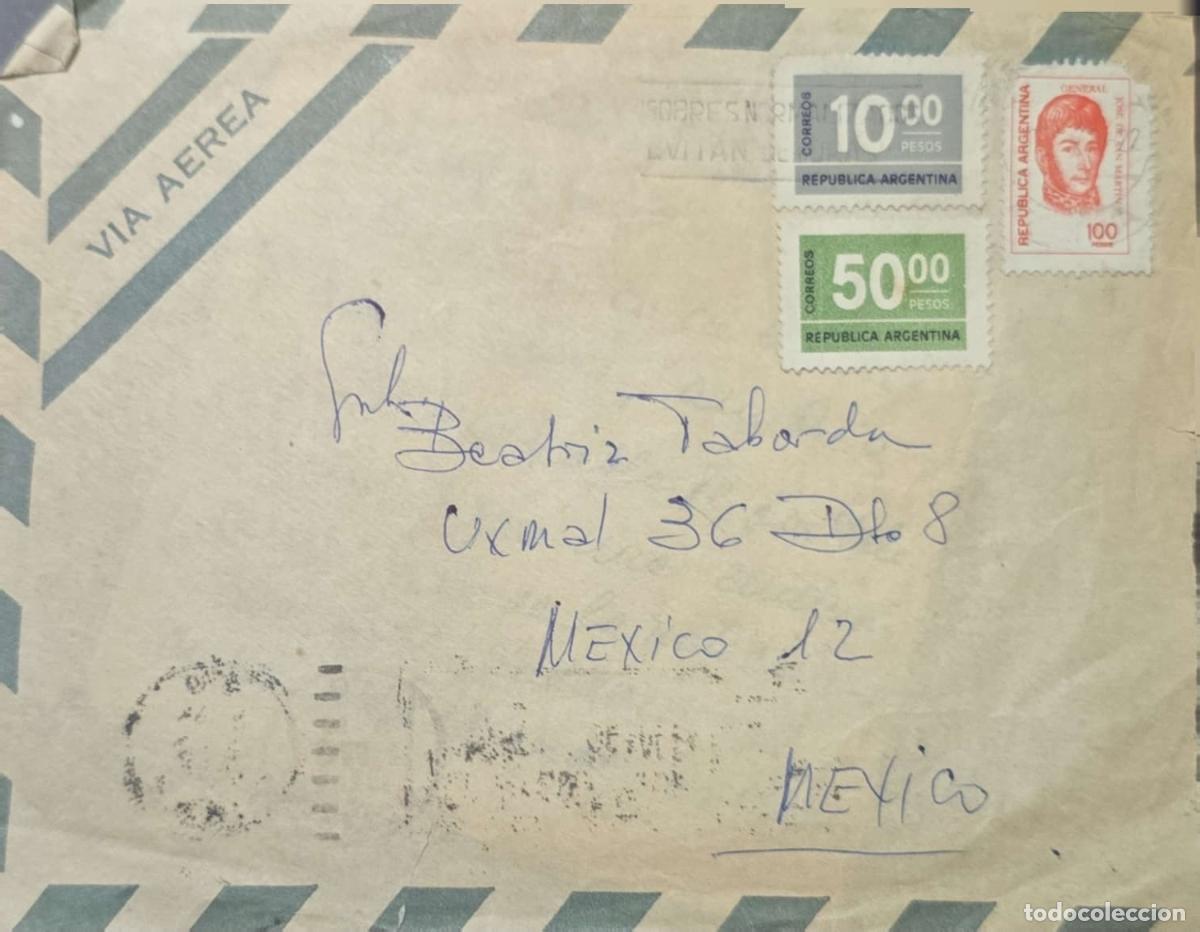 VIA AEREA
CORREOS
10.00
PESOS
REPUBLICA ARGENTINA
GENERAL
REPUBLICA ARGENTINA
100
PESOS
CORREOS
50.00
PESOS
REPUBLICA ARGENTINA
EVITAN
Beatriz Taborda
Uxmal 36 Dto 8
MEXICO 12
MEXICO
todocoleccion